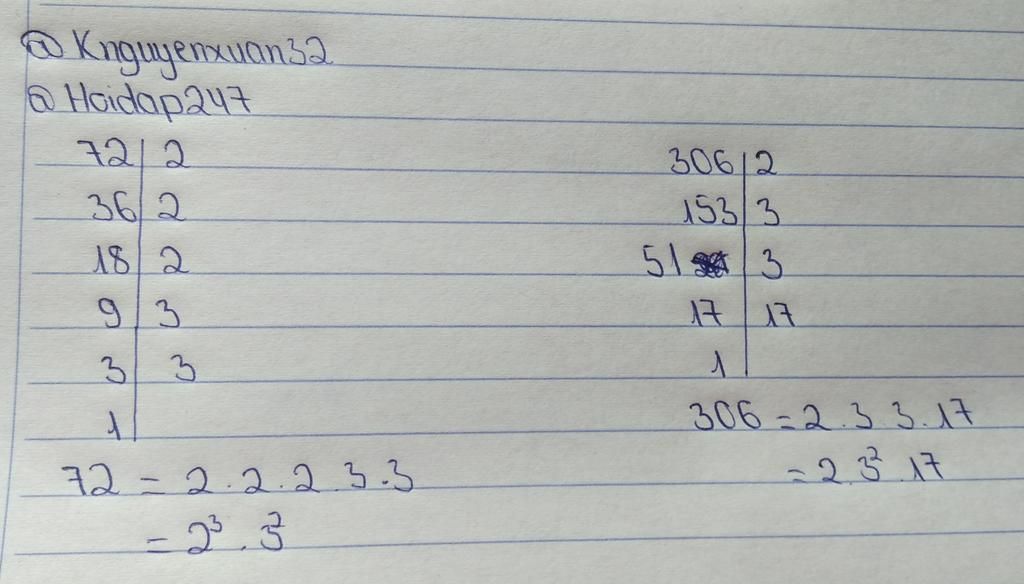 @ Knguyenxuan32
@ Hoidap247
72 | 2
36 | 2
18 | 2
9 | 3
3 | 3
1 |
72 = 2.2.2.3.3
= 2³.3²
306 | 2
153 | 3
51 | 3
17 | 17
1 |
306 = 2.3.3.17
= 2.3².17